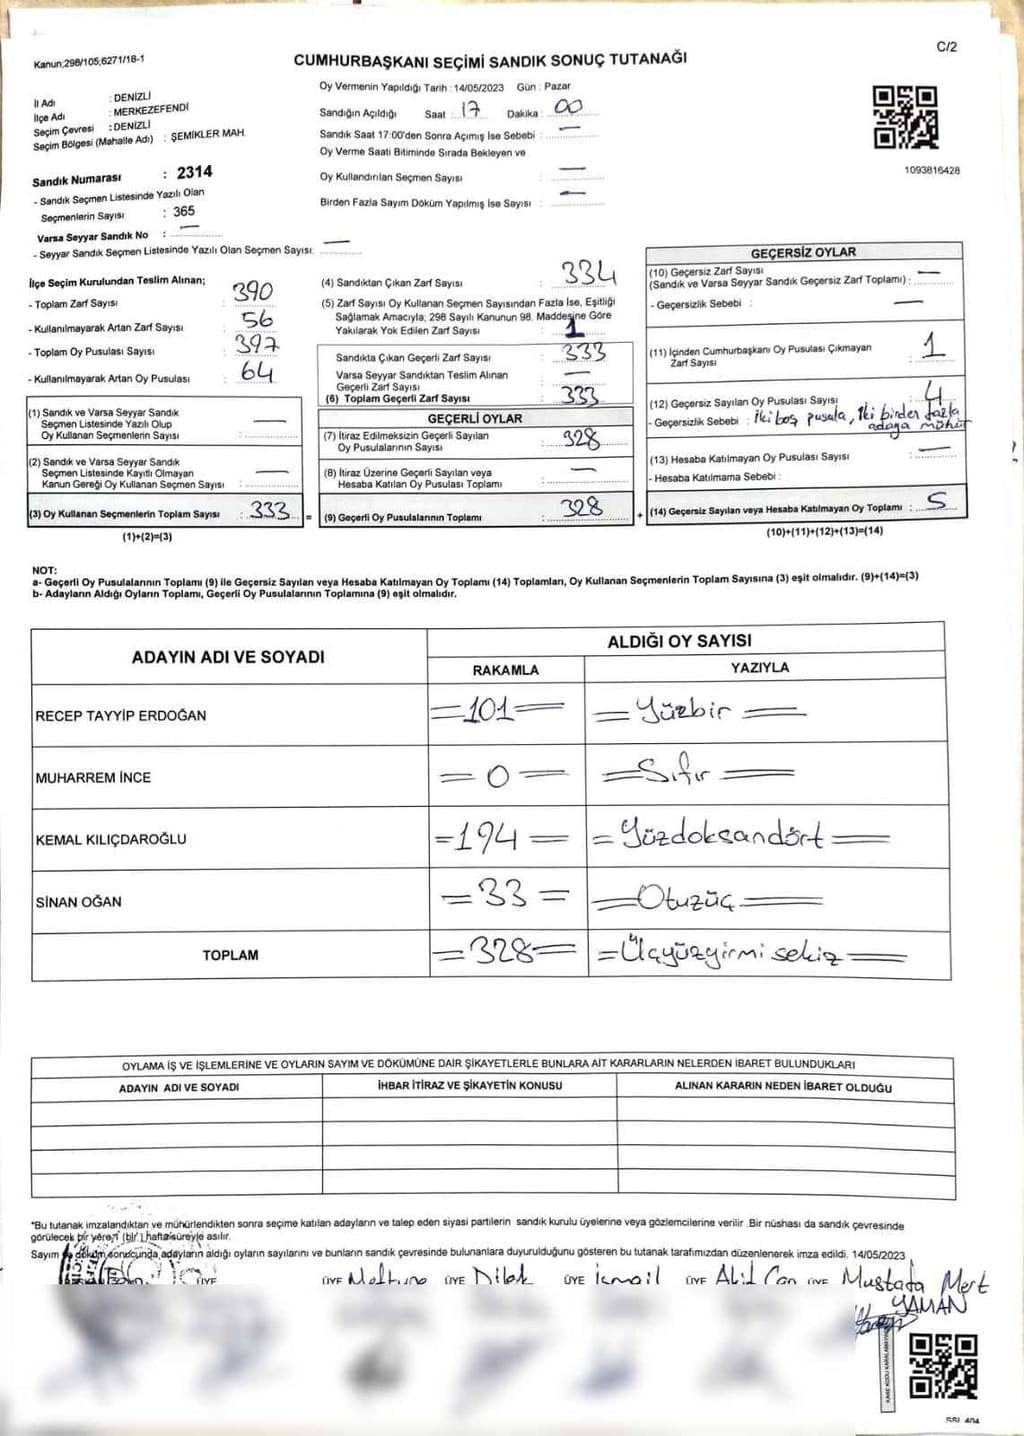 C/2
Kanun;298/105;6271/18-1
CUMHURBAŞKANI SEÇİMİ SANDIK SONUÇ TUTANAĞI
İl Adı : DENİZLİ
İlçe Adı : MERKEZEFENDİ
Seçim Çevresi : DENİZLİ
Seçim Bölgesi (Mahalle Adı) : ŞEMİKLER MAH.
Sandık Numarası : 2314
- Sandık Seçmen Listesinde Yazılı Olan
Seçmenlerin Sayısı : 365
Varsa Seyyar Sandık No : —
- Seyyar Sandık Seçmen Listesinde Yazılı Olan Seçmen Sayısı: —
Oy Vermenin Yapıldığı Tarih : 14/05/2023 Gün : Pazar
Sandığın Açıldığı Saat : 17 Dakika : 00
Sandık Saat 17:00'den Sonra Açımış İse Sebebi : —
Oy Verme Saati Bitiminde Sırada Bekleyen ve
Oy Kullandırılan Seçmen Sayısı : —
Birden Fazla Sayım Döküm Yapılmış İse Sayısı : —
1093816428
İlçe Seçim Kurulundan Teslim Alınan;
- Toplam Zarf Sayısı : 390
- Kullanılmayarak Artan Zarf Sayısı : 56
- Toplam Oy Pusulası Sayısı : 397
- Kullanılmayarak Artan Oy Pusulası : 64
(1) Sandık ve Varsa Seyyar Sandık
Seçmen Listesinde Yazılı Olup
Oy Kullanan Seçmenlerin Sayısı : —
(2) Sandık ve Varsa Seyyar Sandık
Seçmen Listesinde Kayıtlı Olmayan
Kanun Gereği Oy Kullanan Seçmen Sayısı : —
(3) Oy Kullanan Seçmenlerin Toplam Sayısı : 333 =
(1)+(2)=(3)
(4) Sandıktan Çıkan Zarf Sayısı : 334
(5) Zarf Sayısı Oy Kullanan Seçmen Sayısından Fazla İse, Eşitliği
Sağlamak Amacıyla; 298 Sayılı Kanunun 98. Maddesine Göre
Yakılarak Yok Edilen Zarf Sayısı : 1
Sandıkta Çıkan Geçerli Zarf Sayısı : 333
Varsa Seyyar Sandıktan Teslim Alınan
Geçerli Zarf Sayısı : —
(6) Toplam Geçerli Zarf Sayısı : 333
GEÇERLİ OYLAR
(7) İtiraz Edilmeksizin Geçerli Sayılan
Oy Pusulalarının Sayısı : 328
(8) İtiraz Üzerine Geçerli Sayılan veya
Hesaba Katılan Oy Pusulası Toplamı : —
(9) Geçerli Oy Pusulalarının Toplamı : 328 +
GEÇERSİZ OYLAR
(10) Geçersiz Zarf Sayısı
(Sandık ve Varsa Seyyar Sandık Geçersiz Zarf Toplamı) : —
- Geçersizlik Sebebi : —
(11) İçinden Cumhurbaşkanı Oy Pusulası Çıkmayan
Zarf Sayısı : 1
(12) Geçersiz Sayılan Oy Pusulası Sayısı : 4
- Geçersizlik Sebebi : İki boş pusula, İki birden fazla
adaya mühür
(13) Hesaba Katılmayan Oy Pusulası Sayısı : —
- Hesaba Katılmama Sebebi :
(14) Geçersiz Sayılan veya Hesaba Katılmayan Oy Toplamı : 5
(10)+(11)+(12)+(13)=(14)
NOT:
a- Geçerli Oy Pusulalarının Toplamı (9) ile Geçersiz Sayılan veya Hesaba Katılmayan Oy Toplamı (14) Toplamları, Oy Kullanan Seçmenlerin Toplam Sayısına (3) eşit olmalıdır. (9)+(14)=(3)
b- Adayların Aldığı Oyların Toplamı, Geçerli Oy Pusulalarının Toplamına (9) eşit olmalıdır.
ADAYIN ADI VE SOYADI
ALDIĞI OY SAYISI
RAKAMLA YAZIYLA
RECEP TAYYİP ERDOĞAN =101= =Yüzbir=
MUHARREM İNCE =0= =Sıfır=
KEMAL KILIÇDAROĞLU =194= =Yüzdoksandört=
SİNAN OĞAN =33= =Otuzüç=
TOPLAM =328= =Üçyüzyirmi sekiz=
OYLAMA İŞ VE İŞLEMLERİNE VE OYLARIN SAYIM VE DÖKÜMÜNE DAİR ŞİKAYETLERLE BUNLARA AİT KARARLARIN NELERDEN İBARET BULUNDUKLARI
ADAYIN ADI VE SOYADI İHBAR İTİRAZ VE ŞİKAYETİN KONUSU ALINAN KARARIN NEDEN İBARET OLDUĞU
*Bu tutanak imzalandıktan ve mühürlendikten sonra seçime katılan adayların ve talep eden siyasi partilerin sandık kurulu üyelerine veya gözlemcilerine verilir .Bir nüshası da sandık çevresinde
görülecek bir yere,1 (bir ) hafta süreyle asılır.
Sayım döküm sonucunda,adayların aldığı oyların sayılarını ve bunların sandık çevresinde bulunanlara duyurulduğunu gösteren bu tutanak tarafımızdan düzenlenerek imza edildi. 14/05/2023
ÜYE ÜYE Meltune ÜYE Dilek ÜYE İsmail ÜYE Alil Can ÜYE Mustafa Mert
YAMAN